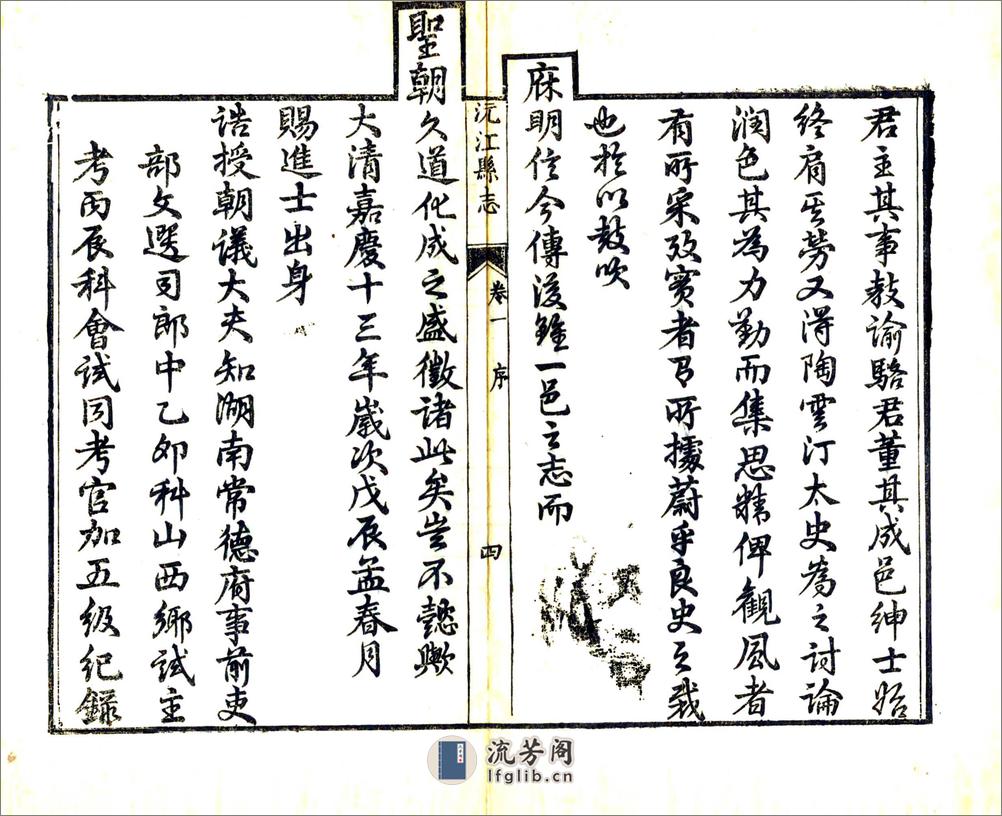 君主其事教諭駱君董其成邑紳士始
終肩其勞又得陶雲汀太史為之討論
潤色其為力勤而集思精俾觀風者
有所采攷實者有所據蔚乎良史之裁
也於以鼓吹
庥明信今傳後雖一邑之志而
沅江縣志
卷一 序
四
聖朝久道化成之盛徵諸此矣豈不懿歟
大清嘉慶十三年歲次戊辰孟春月
賜進士出身
誥授朝議大夫知湖南常德府事前吏
部文選司郎中乙卯科山西鄉試主
考丙辰科會試同考官加五級紀錄
流芳阁
lfglib.cn